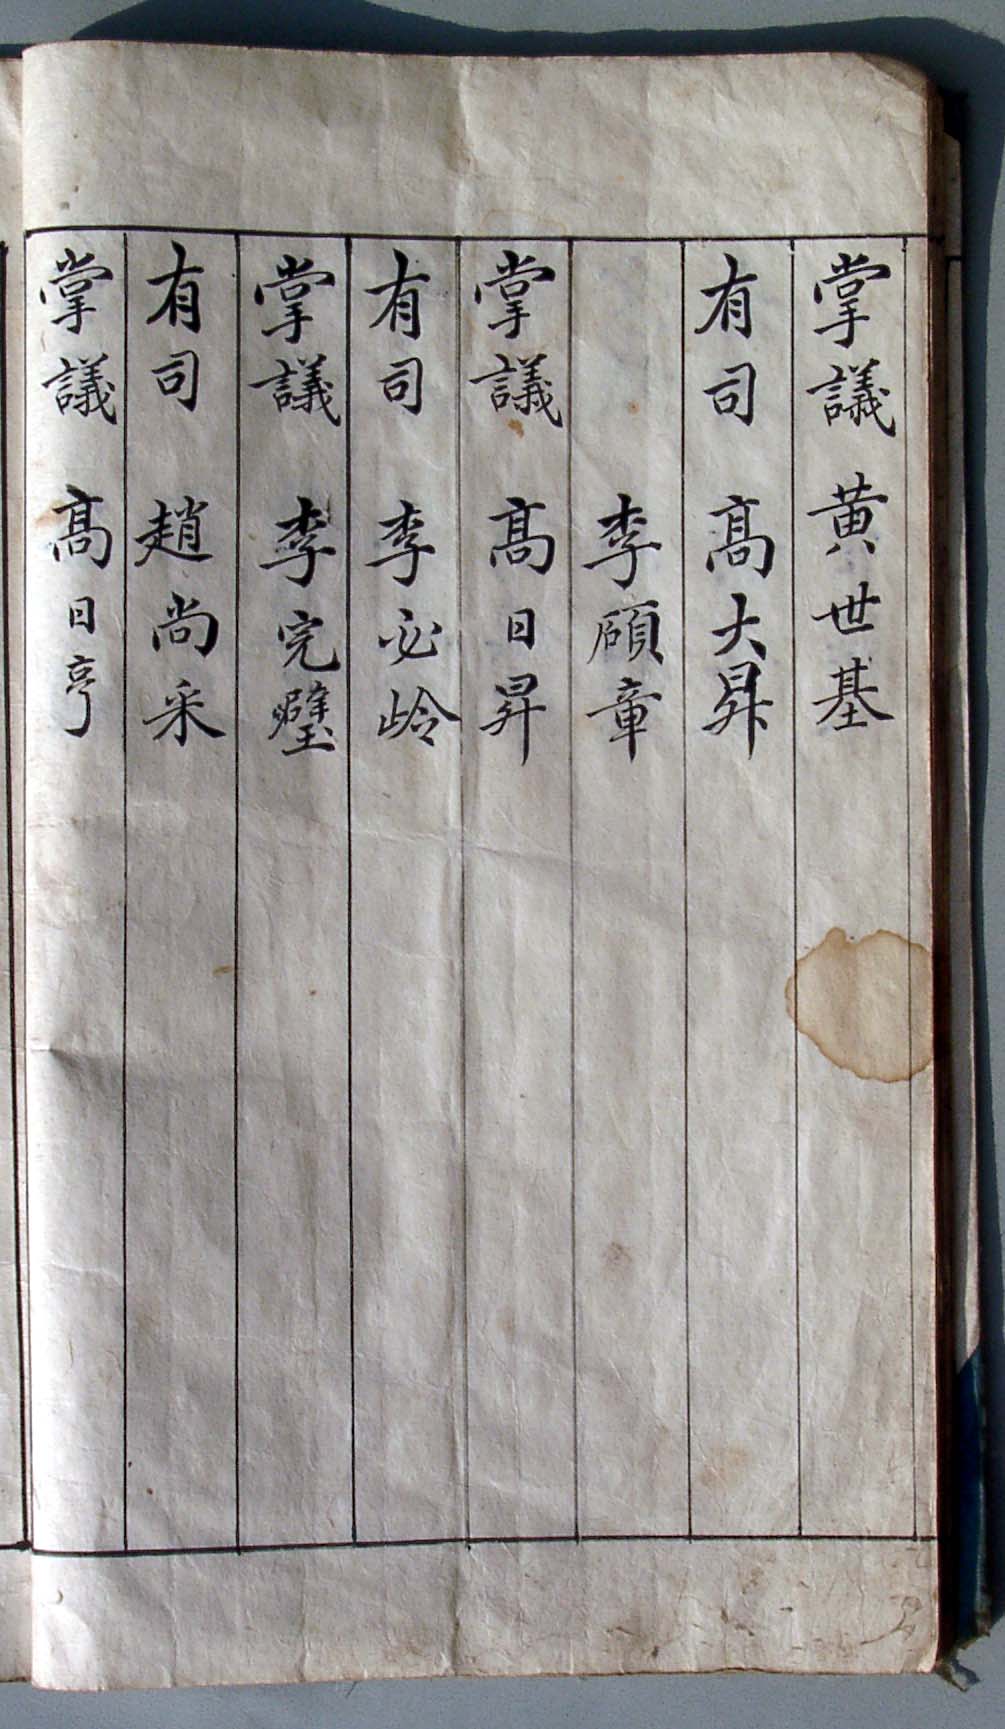 掌議 黃世基
有司 高大昇
李碩章
掌議 高日昇
有司 李必岭
掌議 李完璧
有司 趙尚采
掌議 高日亨